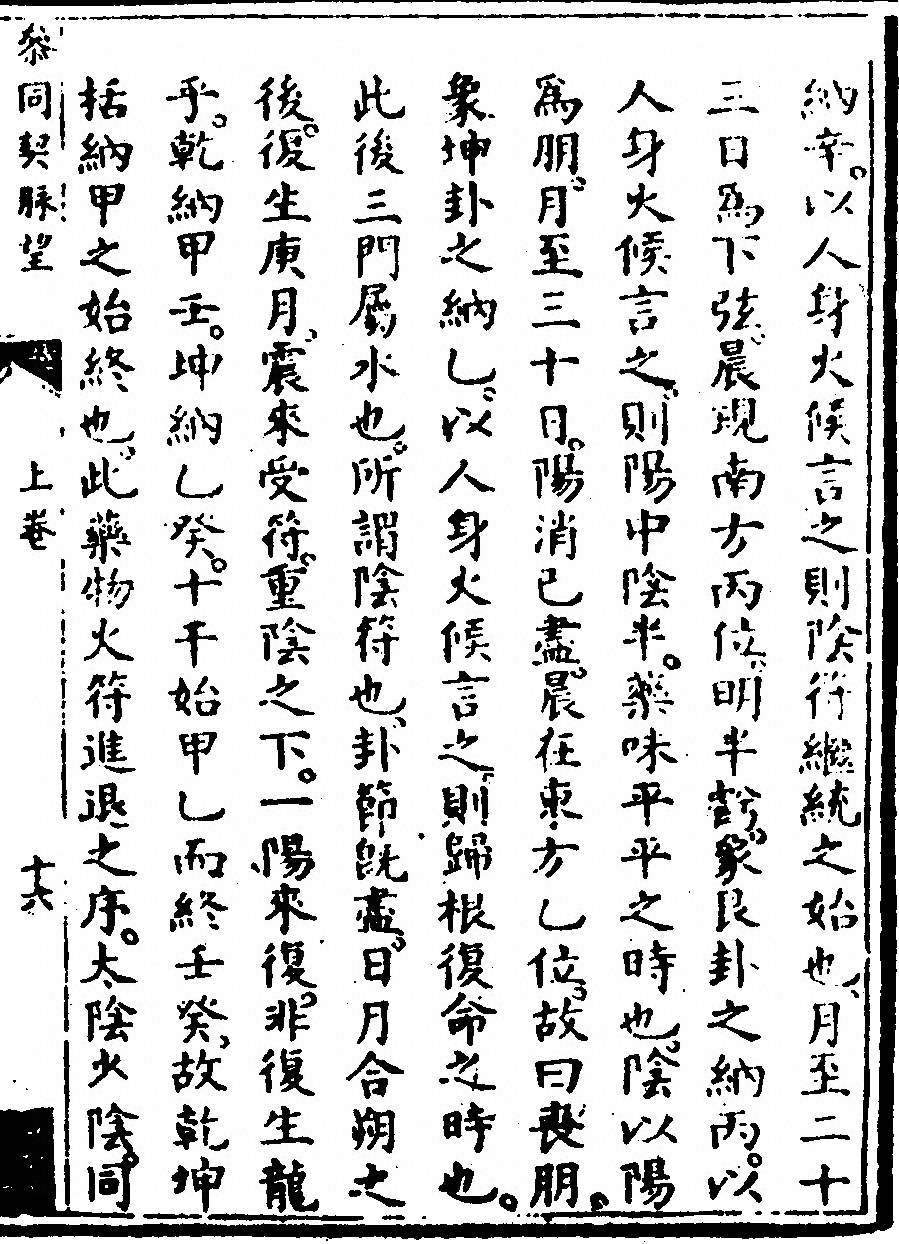 納辛。以人身火候言之則陰符繼統之始也、月至二十
三日為下弦、晨現南方丙位、明半虧。象艮卦之納丙。以
人身火候言之、則陽中陰半。藥味平平之時也。陰以陽
為朋。月至三十日。陽消已盡。晨在東方乙位。故曰喪朋。
象坤卦之納乙。以人身火候言之、則歸根復命之時也。
此後三門屬水也。所謂陰符也、卦節既盡。日月合朔之
後。復生庚月、震來受符。重陰之下。一陽來復。非復生龍
乎。乾納甲壬。坤納乙癸。十干始甲乙而終壬癸、故乾坤
括納甲之始終也、此藥物火符進退之序。太陰少陰。同
參同契脉望
上卷
十六